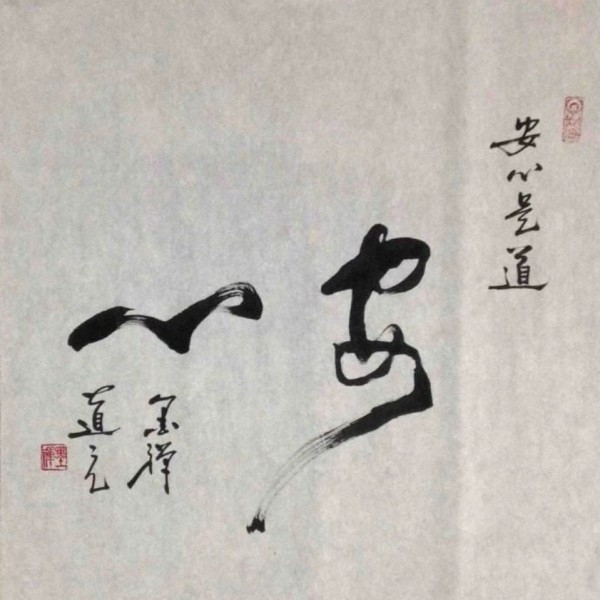 安心是道
安心
墨禅
道元